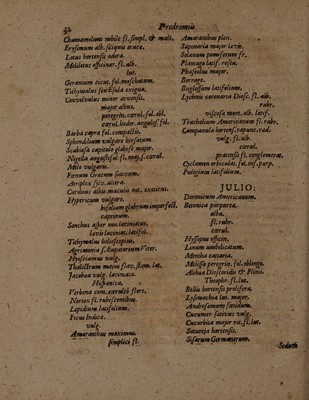 32
Prodromus
Chamæmelum nobile fl. simpl. & mult.
Erysimum alb. siliqua
Lotus hortensis odora.
Melilotus officinar. fl. alb.
lut.
Geranium cicut. fol. moschatum.
Tithymalus exigua.
Convolvulus minor arvensis.
major albus.
peregrin. cærul. fol. obl.
cærul. heder. fol.
Barba capra fol. compactis.
Sphondilium vulgare hirsutum.
Scabiosa capitulo globoso major.
Nigella angustifol. fl. maj. s. cærul.
Melo vulgaris.
Fœnum Græcum sativum.
Atriplex altera.
Carduus albis maculis not. exoticus.
Hypericum vulgare.
bifolium glabrum
caprinum.
Sonchus asper non laciniatus.
lævis laciniat. latifol.
Tithymalus helioscopius.
Agrimonia s. Eupatorium Veter.
Hyosciamus vulg.
Thalictrum majus flav. stam. lut.
Jacobæa vulg. laciniata
Hispanica.
Verbena com. cæruleo flore.
Nerion fl. rubescentibus.
Lepidium latifolium.
Ficus Indica.
vulg.
Amaranthus maximus
simplici fl.
Amaranthus pan.
Saponaria major lævis.
Solanum pomiferum fr.
Plantago latif. rosea.
Phaseolus major.
Borrago.
Buglossum latifolium.
Lychnis coronaria Diosc. fl. alb.
rubr.
viscosa mont. alb. latif.
Trachelium Americanum fl. rubr.
Campanula hortens. rapunc. rad.
vulg. fl. alb.
cærul.
pratensis fl. conglomerat.
Cyclamen orbiculat. fol. inf. purp.
Pulegium latifolium.
JULIO:
Doronicum Americanum.
Betonica purpurea.
alba.
fl. rubr.
cærul.
Hyssopus officin.
Linum umbilicatum.
Mentha cataria.
Melissa peregrin. fol. oblongo.
Althæa Dioscoridis & Plinii.
Theophr. fl. lut.
Bellis hortensis prolifera.
Lysimachia lut. major.
Androsæmum fœtidum.
Cucumer sativus vulg.
Cucurbita major rot. fl. lut.
Satureja hortensis.
Sisarum Germanorum.
Sedum